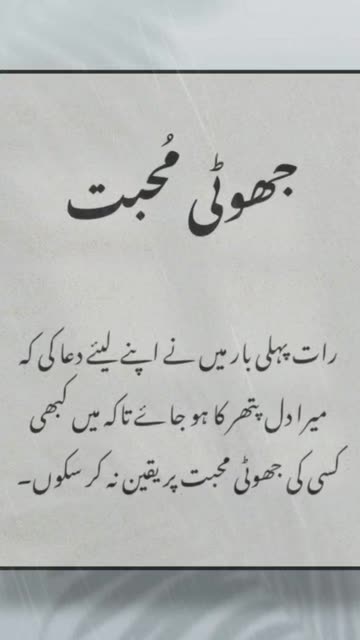 جھوٹی مُحبت
رات پہلی بار میں نے اپنے لیئے دعا کی کہ
میرا دل پتھر کا ہو جائے تاکہ میں کبھی
کسی کی جھوٹی محبت پر یقین نہ کر سکوں۔